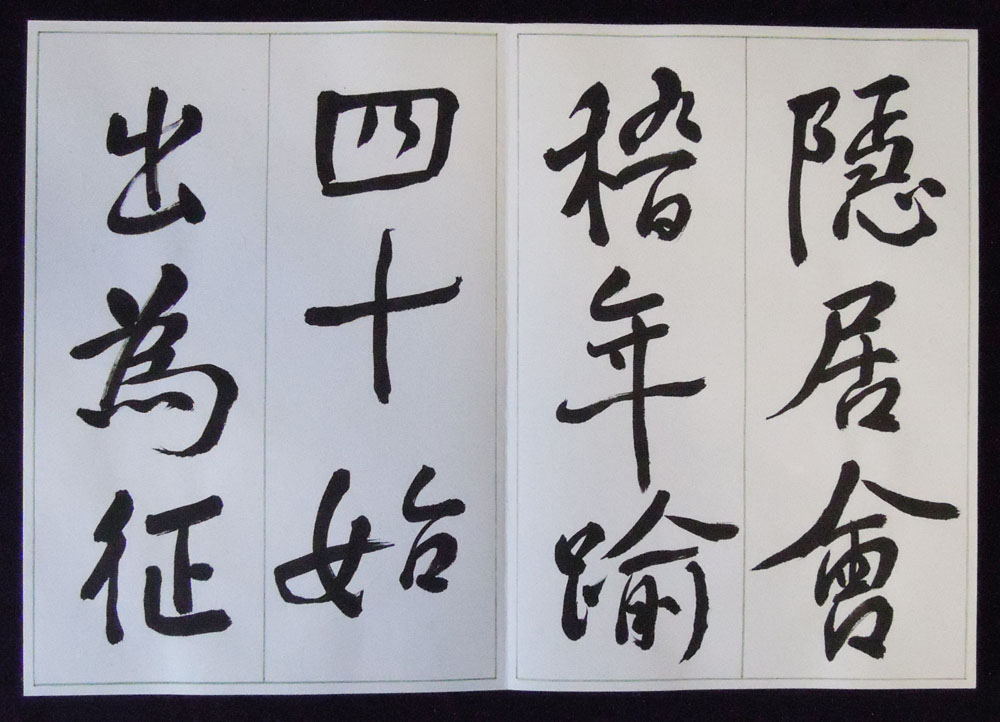 隱居會
稽年踰
四十始
出為征